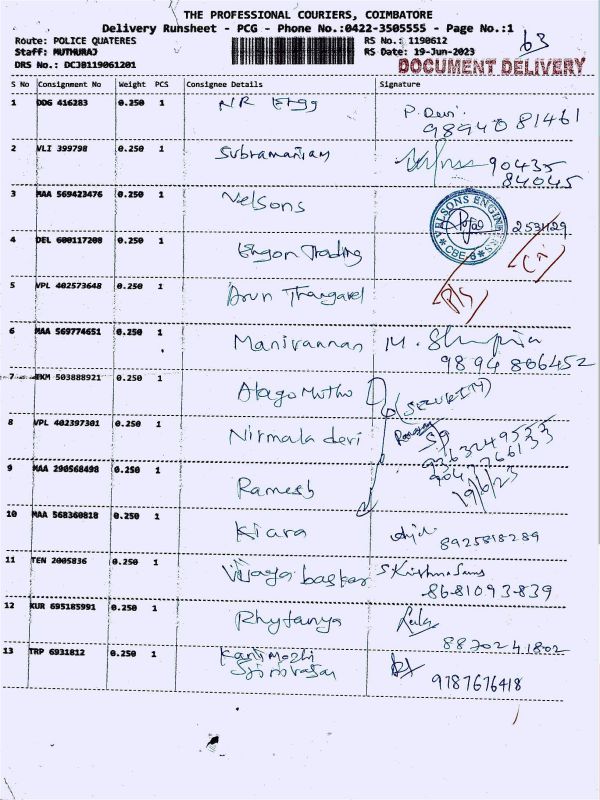 THE PROFESSIONAL COURIERS, COIMBATORE
Delivery Runsheet - PCG - Phone No.:0422-3505555 - Page No.:1
Route: POLICE QUATERES RS No.: 1190612 63
Staff: MUTHURAJ RS Date: 19-Jun-2023
DRS No.: DCJB119061201 DOCUMENT DELIVERY
S No Consignment No Weight PCS Consignee Details Signature
1 DDG 416283 0.250 1 NR Engg P. Devi
98940 81461
2 VLI 399798 0.250 1 Subramaniam 90435
84045
3 MAA 569423476 0.250 1 Velsons VELSONS ENGINEERS CBE-6 2531129
4 DEL 600117208 0.250 1 Engon Trading
5 VPL 402573648 0.250 1 Arun Thangavel
6 MAA 569774651 0.250 1 Manivannan M.
98 94 806452
7 503888921 0.250 1 Alagu Muthu (SECURITY)
8 VPL 402397301 0.250 1 Nirmala devi
9 MAA 290568498 0.250 1 Ramesh 19/6/23
10 MAA 568360818 0.250 1 Kiara 8925818289
11 TEN 2005836 0.250 1 Vijaya baskar S Krishna
8681093839
12 KUR 695185991 0.250 1 Rhytanya
8870241802
13 TRP 6931812 0.250 1 Kanimozhi
Srinivasan 9787676418